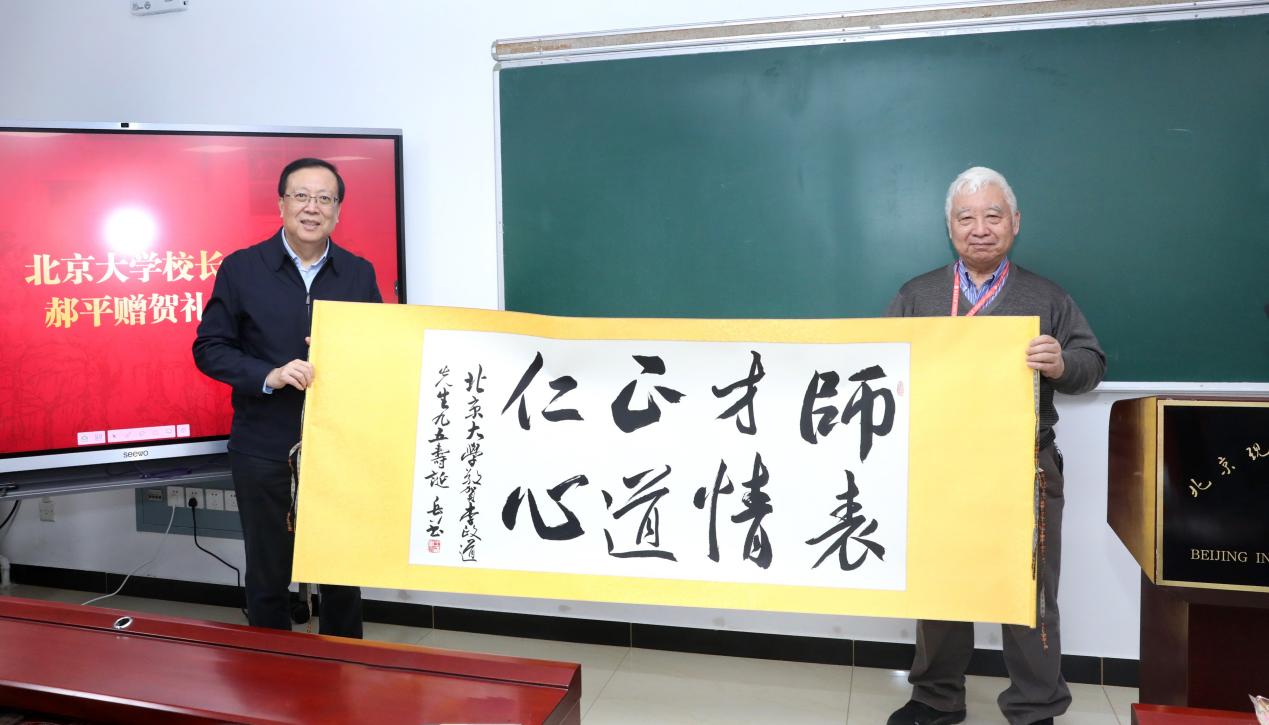 北京大学校长
郝平赠贺礼
seewo
師表
才情
正道
仁心
北京大學敬賀李政道
先生九五壽誕
北京现
BEIJING IN